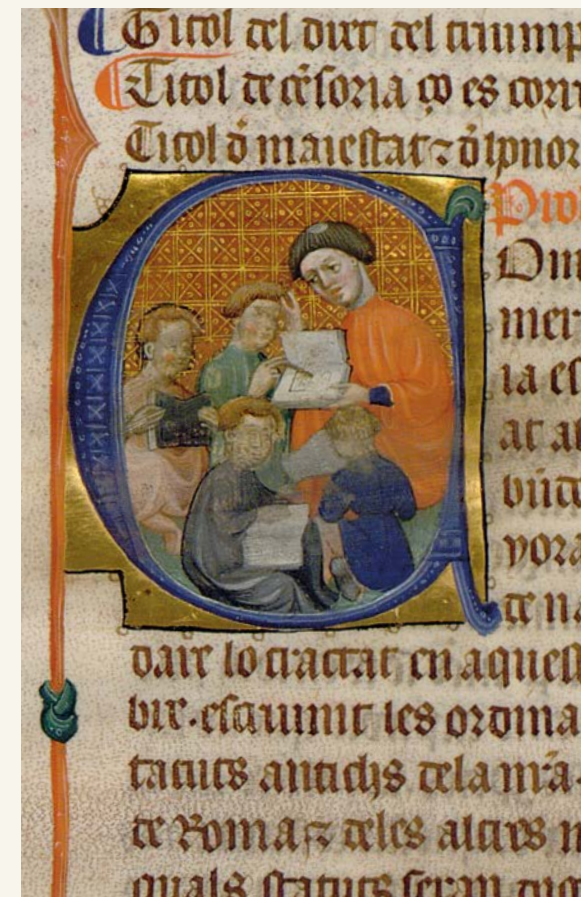 Titol del dret del trium
Titol de cēsoria ço es corr
Titol d̄ maiestat ⁊ d̄
Pro
mer
ia es
at al
vora
de na
dare lo tractat en aquest
bre. escriuint les ordina
tatuts antichs dela mr̄a
de Roma ⁊ deles altres
quals statuts seran